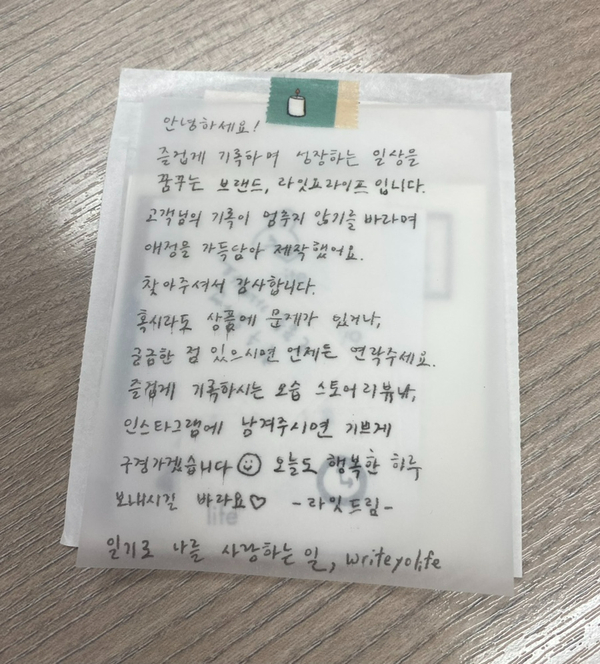 안녕하세요!
즐겁게 기록하며 성장하는 일상을
꿈꾸는 브랜드, 라잇요라이프 입니다.
고객님의 기록이 멈추지 않기를 바라며
애정을 가득담아 제작했어요.
찾아주셔서 감사합니다.
혹시라도 상품에 문제가 있거나,
궁금한 점 있으시면 언제든 연락주세요.
즐겁게 기록하시는 모습 스토어리뷰나,
인스타그램에 남겨주시면 기쁘게
구경가겠습니다 오늘도 행복한 하루
보내시길 바라요♡ -라잇드림-
life
일기로 나를 사랑하는 일, writeyolife